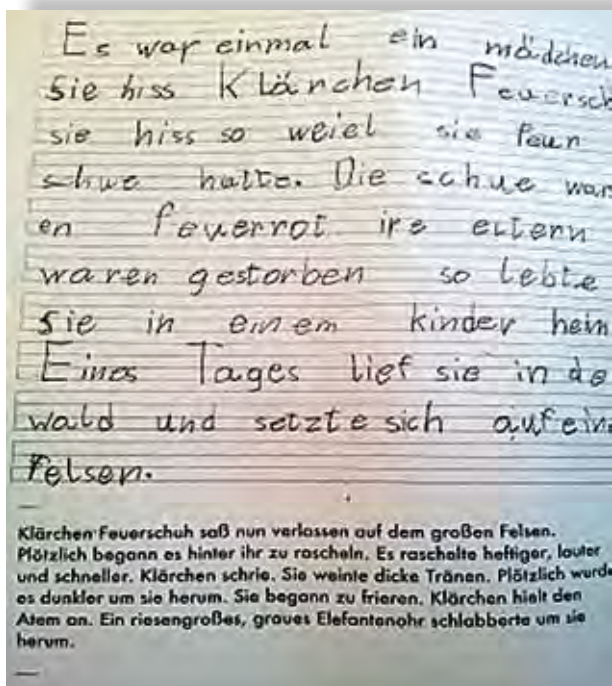 Es war einmal ein mädchen
sie hiss Klärchen Feuersch
sie hiss so weiel sie feur
schue hatte. Die schue war
en feuerrot ire eltern
waren gestorben so lebte
sie in einem kinder hein
Eines Tages lief sie in de
wald und setzte sich auf ein
felsen.
Klärchen Feuerschuh saß nun verlassen auf dem großen Felsen.
Plötzlich begann es hinter ihr zu rascheln. Es raschelte heftiger, lauter
und schneller. Klärchen schrie. Sie weinte dicke Tränen. Plötzlich wurde
es dunkler um sie herum. Sie begann zu frieren. Klärchen hielt den
Atem an. Ein riesengroßes, graues Elefantenohr schlabberte um sie
herum.